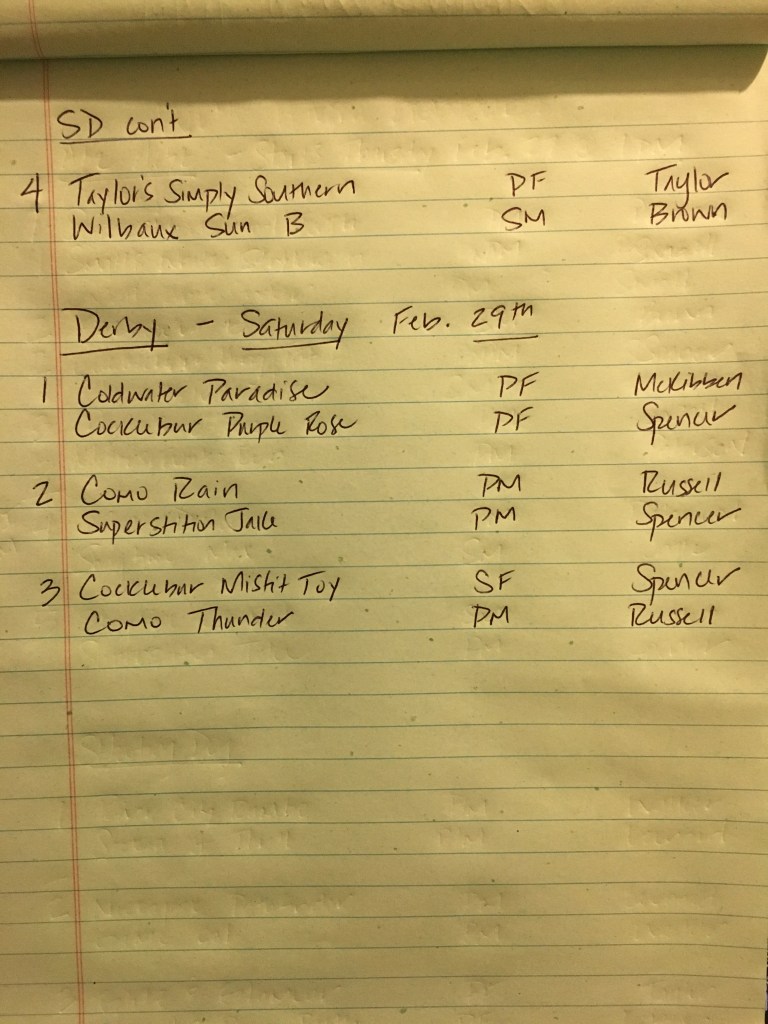 SD con't
4 Taylor's Simply Southern PF Taylor
Wilbaux Sun B SM Brown
Derby - Saturday Feb. 29th
1 Coldwater Paradise PF McKibben
Cocklebur Purple Rose PF Spencer
2 Como Rain PM Russell
Superstition Jake PM Spencer
3 Cocklebur Misfit Toy SF Spencer
Como Thunder PM Russell